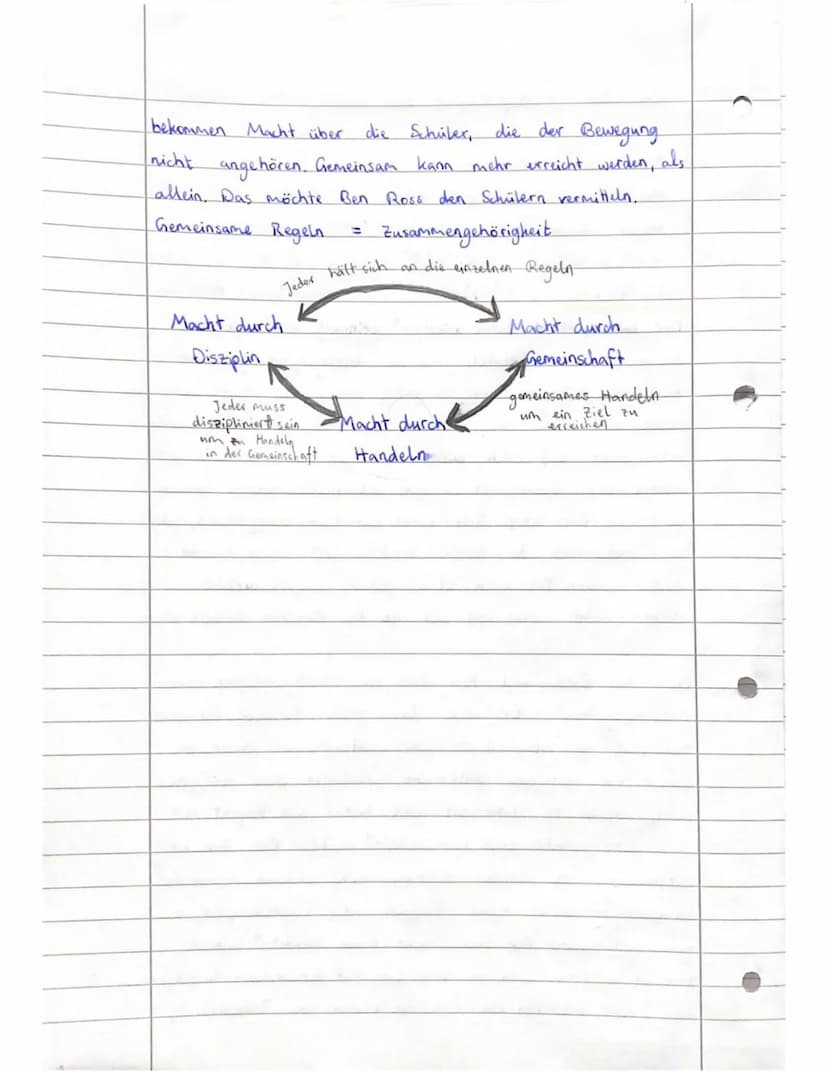 bekommen Macht über die Schüler, die der Bewegung
nicht angehören. Gemeinsam kann mehr erreicht werden, als
allein. Das möchte Ben Ross den Schülern vermitteln.
Gemeinsame Regeln = Zusammengehörigkeit
Jeder hält sich an die einzelnen Regeln
Macht durch
Disziplin
Macht durch
Gemeinschaft
Jeder muss
diszipliniert sein
um zu Handeln
in der Gemeinschaft
Macht durch
Handeln
gemeinsames Handeln
um ein Ziel zu
erreichen